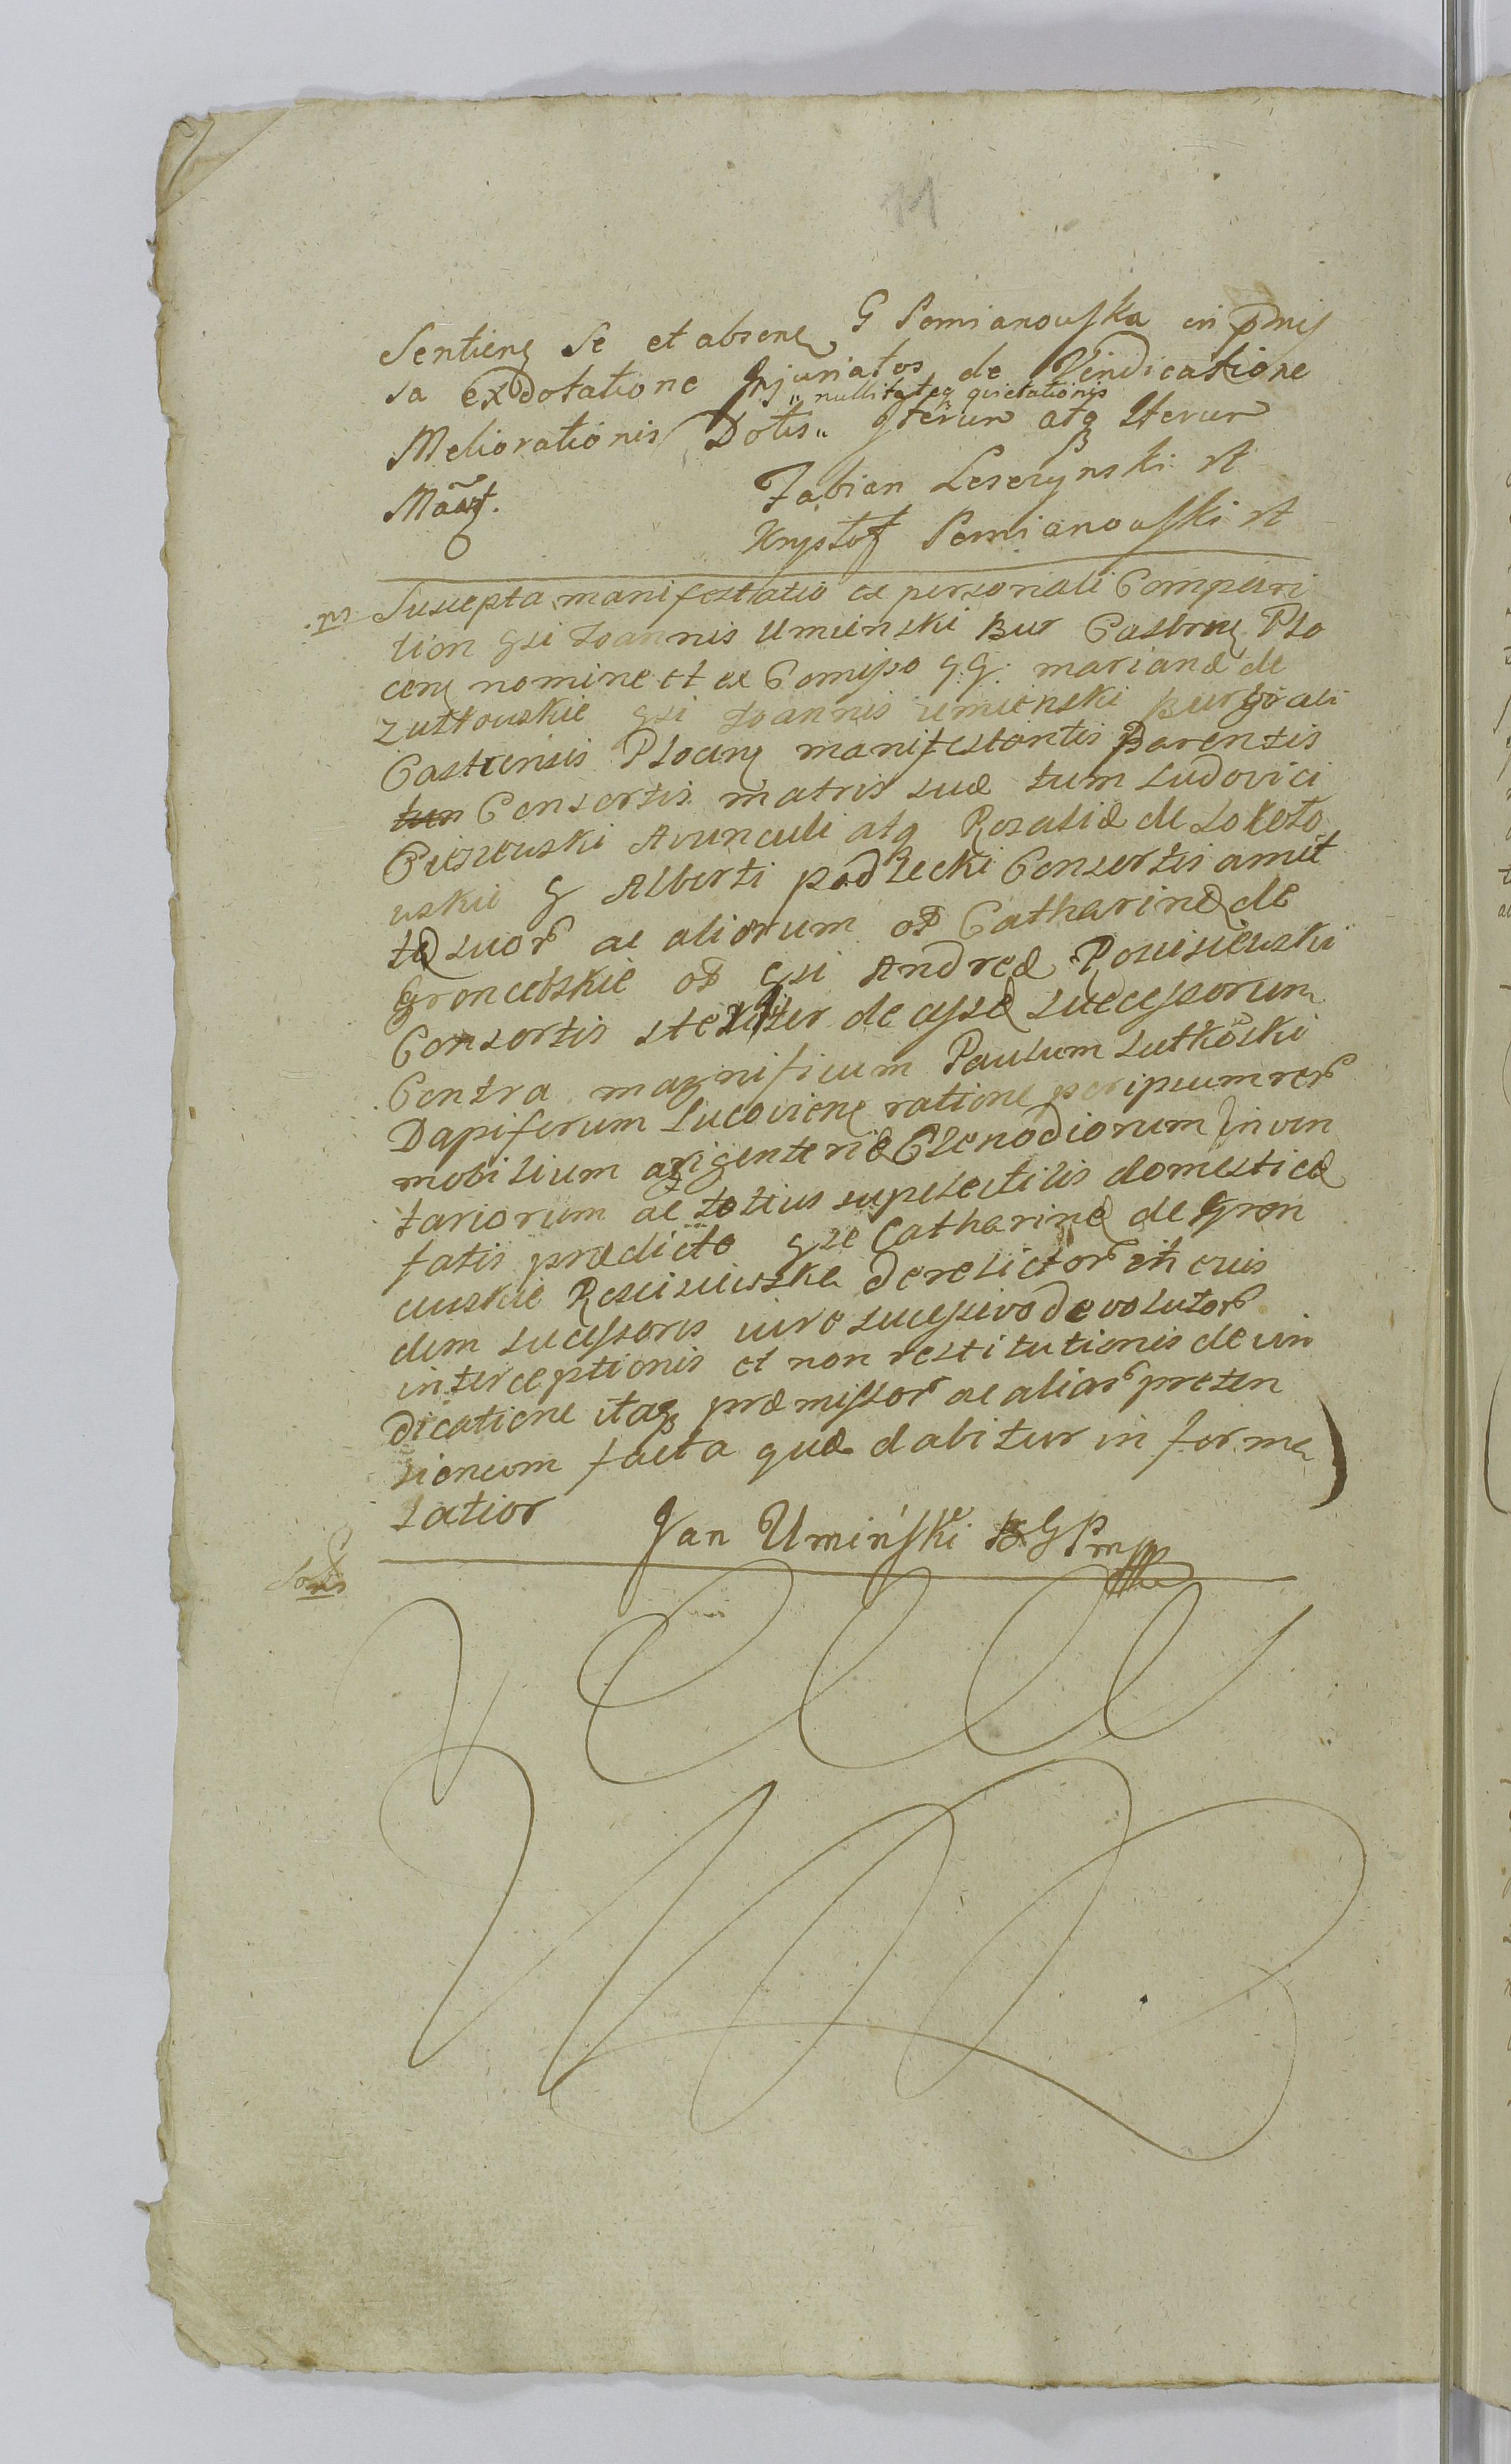 11
Sentieng Se et abseng G Pomianowska in pmis
sa exDotatione Injuriatos de Vindicatione
„ nullitateq quietationis
Meliorationis Dotis „ Iterum atq Iterum
Fabian Leseczynski
Krysztof Pomianowski
Suscepta manifestatio ex personali Compari
tion gsi Joannis Uminski Bur Castren Plo
cen nomine et ex Comisso GG. mariane de
zutkowskie gsi Joannis uminski burgrabi
Castrensis Plocen manifestantis Parentis
tum Consortis matris suæ tum Ludovici
Avunculi atq Rosaliæ de Lokoto
wskie G Alberti podlecki Consortis amit
tæ suor ac aliorum os Catharinæ de
Groncebskie os gsi Andreæ Rosciszewski
Consortis steriliter decessæ successorum
Contra magnificum Paulum Lutkoski
Dapiferum ratione per ipsum rer
mobilium argenteriæ Clenodiorum inven
tariorum ac totius supelectilis domesticæ
fatis prædicto gze Catharinæ de Gron
cewskie Resciszewska derelictor et eius
dem sucessoris iure sucessivo devolutor
interceptionis et non restitutionis de vin
dicatione itaq præmissor ac aliar preten
sionum facta quæ dabitur in forma
latior
Jan Umiński BGP mpp